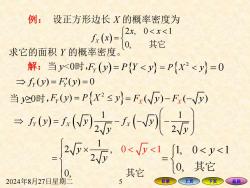 例： 设正方形边长 X 的概率密度为
f_X(x) = { 2x, 0 < x < 1
0, 其它
求它的面积 Y 的概率密度。
解：当 y<0时, F_Y(y) = P{Y < y} = P{X² < y} = 0
⇒ f_Y(y) = F_Y'(y) = 0
当 y≥0时, F_Y(y) = P{X² ≤ y} = F_X(√y) − F_X(−√y)
⇒ f_Y(y) = f_X(√y) 1/(2√y) − f_X(−√y)(−1/(2√y))
= { 2√y × 1/(2√y), 0 < √y < 1 = { 1, 0 < y < 1
0, 其它 0, 其它
2024年8月27日星期二 5